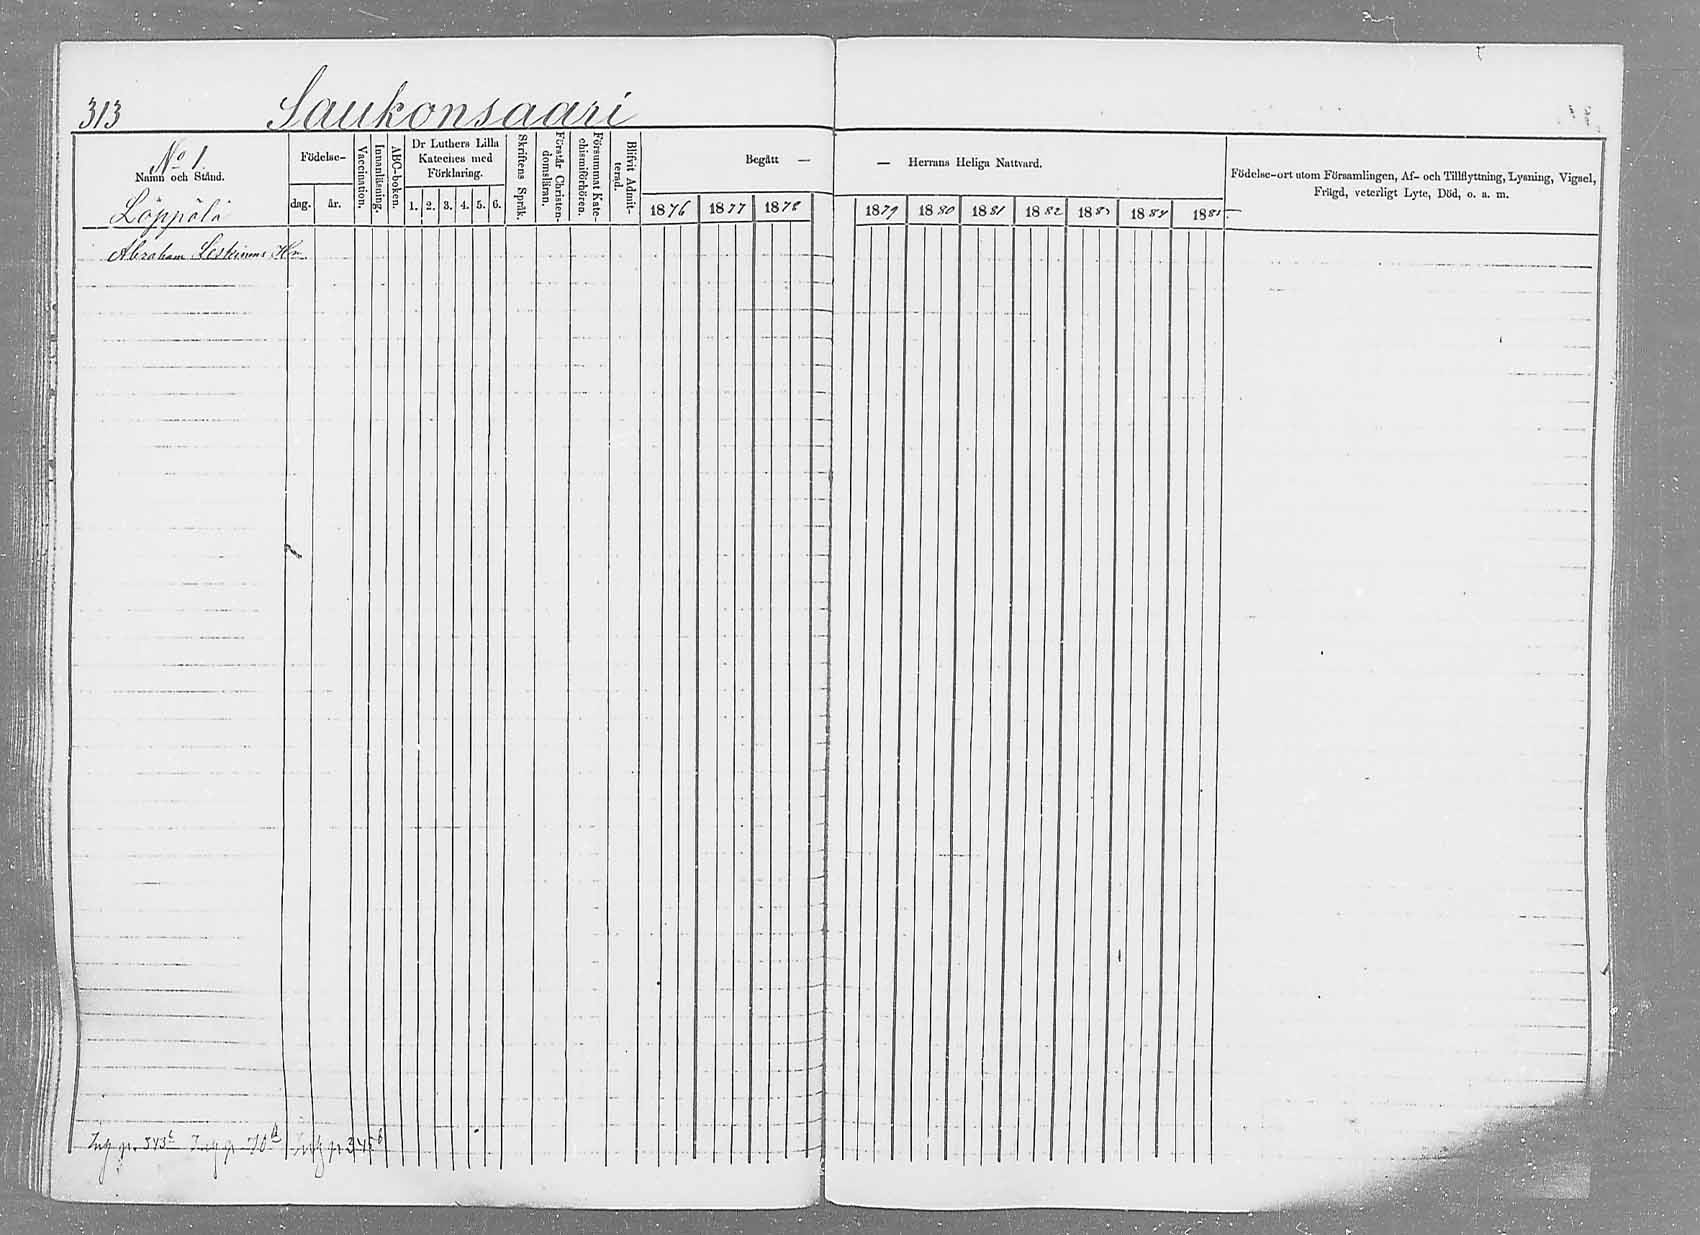 313 Saukonsaari
No 1.
Namn och Stånd.
Löppölä
Födelse-
dag. år.
Vaccination.
Innanläsning.
ABC-boken.
Dr Luthers Lilla
Kateches med
Förklaring.
1. 2. 3. 4. 5. 6.
Skriftens Språk.
Förstår Christen-
domsläran.
Försummat Kate-
chismiförhören.
Blifvit Admit-
terad.
Begått —
1876 1877 1878
— Herrans Heliga Nattvard.
1879 1880 1881 1882 1883 1884 1885
Födelse-ort utom Församlingen, Af- och Tillflyttning, Lysning, Vigsel,
Frägd, veterligt Lyte, Död, o. a. m.
Abraham Leskinens Hm